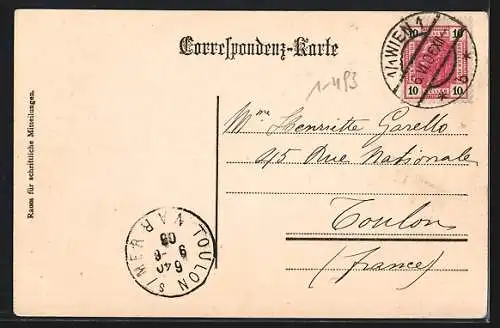 Correspondenz-Karte
10 10
10 10
1/1 WIEN 1
1-493
Mme Henriette Garello
45 Rue Nationale
Toulon
(France)
Raum für schriftliche Mitteilungen.
TOULON S/MER VAR
640
9 -6
09